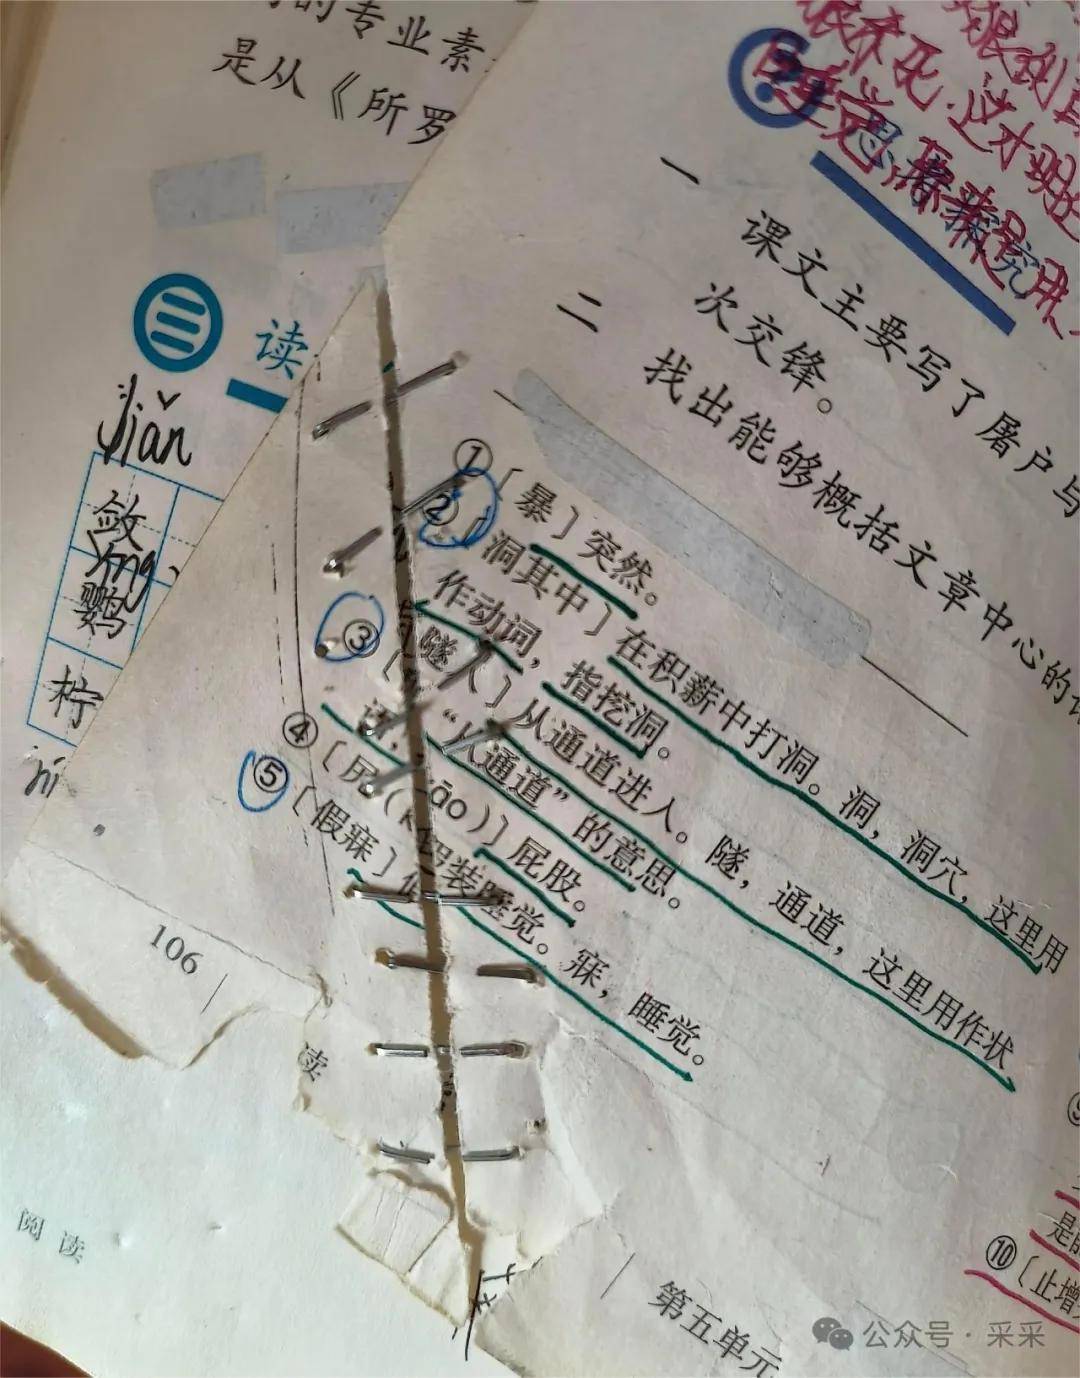 的专业素
是从《所罗
读
liǎn
敛
yīng
鹦
柠
106
读
阅读
思考探究
一 课文主要写了屠户与
次交锋。
二 找出能够概括文章中心的
①〔暴〕突然。
②〔洞其中〕在积薪中打洞。洞，洞穴，这里用
作动词，指挖洞。
③〔隧入〕从通道进入。隧，通道，这里用作状
语，“从通道”的意思。
④〔尻（kāo）〕屁股。
⑤〔假寐〕假装睡觉。寐，睡觉。
⑩〔止增
第五单元
公众号·采采